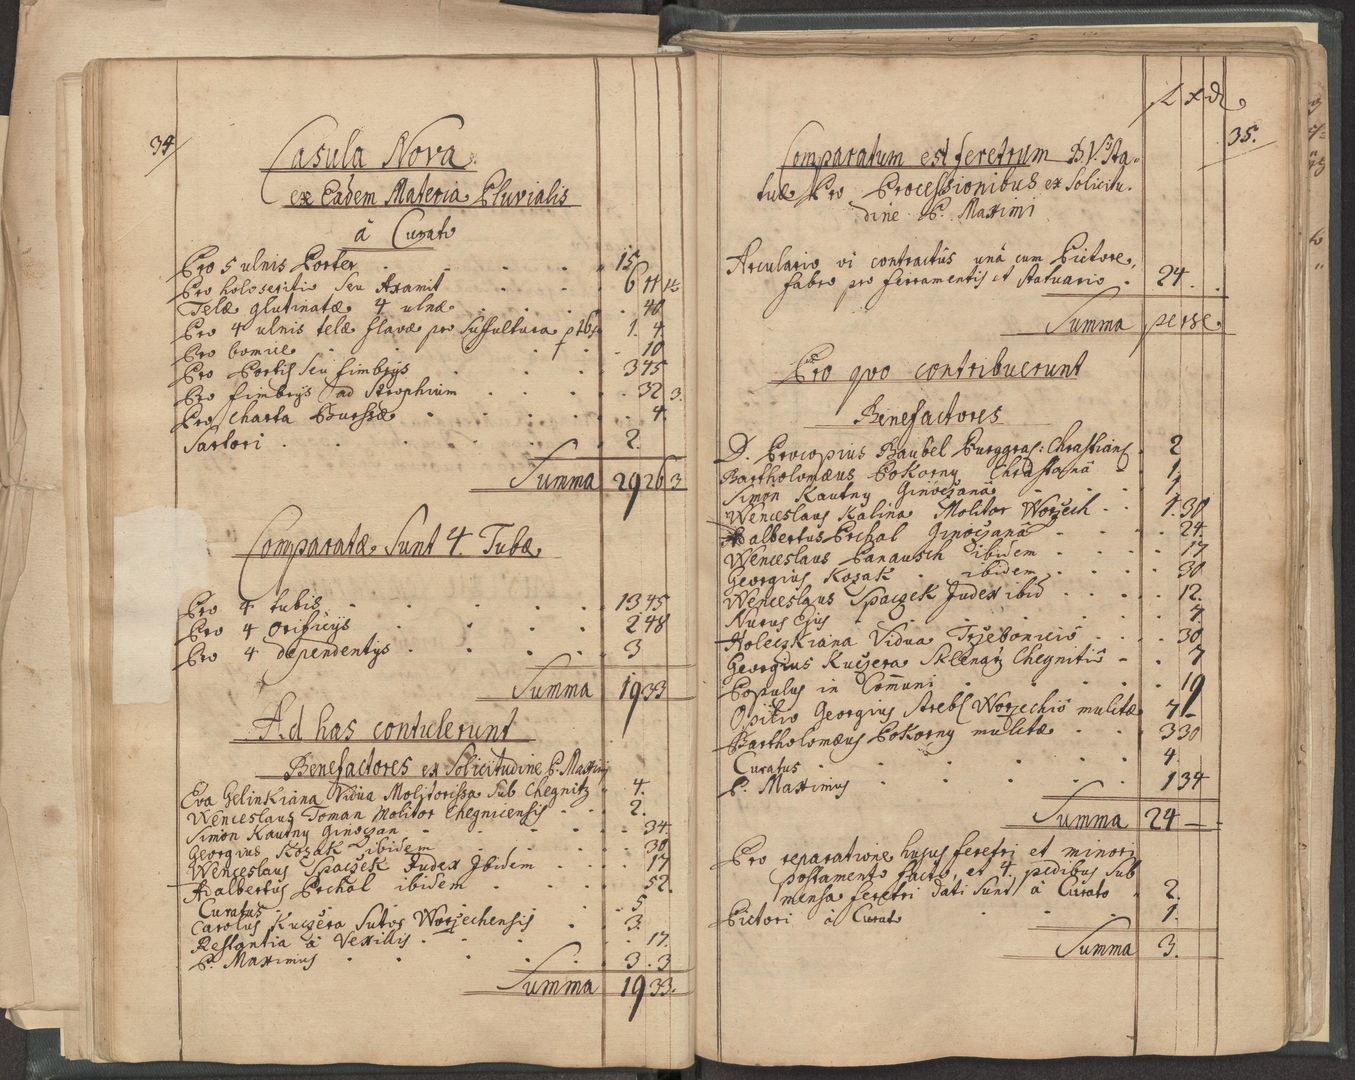 34
Casula Nova
ex Eadem Materia Pluvialis
à Curato
Pro 5 ulnis Porter . . . . . 15
Pro holosericio seu Axamit . . . 6 11 1½
Telæ glutinatæ 4 ulnæ . . . . 40
Pro 4 ulnis telæ flavæ pro suffultura p 16 x 1. 4
Pro bomice . . . . 10
Pro Portis seu fimbrÿs . . . . 3 45
Pro fimbrÿs ad Strophium . . . . 32 3.
Pro Charta Boursæ . . . . 4.
Sartori . . . . . . 2.
Summa 29 26 3
Comparatæ Sunt 4. Tubæ
Pro 4 tubis . . . . . 13 45
Pro 4 Orificÿs . . . . . 2 48
Pro 4 dependentÿs . . . . 3
Summa 19 33
Ad has contulerunt
Benefactores ex Solicitudine P. Maximi
Eva Gelinkiana Vidua Molitorissa sub Chegnitz 4.
Wenceslaus Toman Molitor Chegnicensis . . 2.
Simon Kautny Ginoczan . . . . 34
Georgius Kozak ibidem . . . . 30
Wenceslaus Spaczek Judex Ibidem . . 17
Adalbertus Prchal ibidem . . . . 52.
Curatus . . . . . . 5
Carolus Kuczera Sutor Worzechensis . 3.
Restantia à Vexillis . . . . . 17.
P. Maximus . . . . . 3. 3
Summa 19 33.
fl x d
35.
Comparatum est feretrum B.V. Sta-
tuæ Pro Processionibus ex Solicitu-
dine P. Maximi
Arculario vi contractûs unà cum Pictore,
fabro pro ferramentis et statuario . 24 .
Summa perse
Pro quo contribuerunt
Benefactores
D. Procopius Baubel Burggraf: Chrastians . 2
Bartholomæus Pokorny Chrastanâ . . 1.
Simon Kautny Ginoczanâ . . . 1
Wenceslaus Kalina Molitor Worzech . . 1. 30
Adalbertus Prchal Ginoczanâ . . . 24.
Wenceslaus Panausch ibidem . . . 17
Georgius Kozak . ibidem . . . 30
Wenceslaus Spaczek Judex ibid . . . 12.
Nurus Ejus . . . . . 7
Holeczkiana Vidua Trzebonicio . . . 30
Georgius Kuczera Chegnitio . . 7
Populus in Comuni . . . . . 19
Opilio Georgius Strebl Worzechio mulctæ 7 –
Bartholomæus Pokorny mulctæ . . 3 30
Curatus . . . . . . 4.
P. Maximus . . . . . 1 34
Summa 24 – –
Pro reparatione hujus feretri et minori
postamento facto, et 4. pedibus sub
mensa feretri dati sunt à Curato . 2.
Pictori à Curato . . . . 1.
Summa 3.